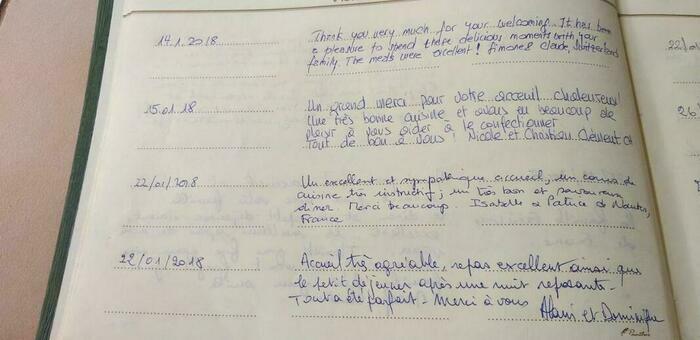 14.1.2018
Thank you very much for your welcoming. It has been
a pleasure to spend these delicious moments with your
family. The meals were excellent! Simone & Claude, Switzerland
15.01.18
Un grand merci pour votre acceuil chaleureux!
Une très bonne cuisine et avons eu beaucoup de
plaisir à vous aider à la confectionner
Tout de bon à vous! Nicole et Christian Clément CH
22/01/2018
Un excellent et sympathique accueil, un cours de
cuisine très instructif; un très bon et savoureux
diner. Merci beaucoup. Isabelle & Patrice de Nantes,
France
22/01/2018
Accueil très agréable, repas excellent ainsi que
le petit déjeuner après une nuit reposante.
Tout a été parfait - Merci à vous Alain et Dominique
22/01
26